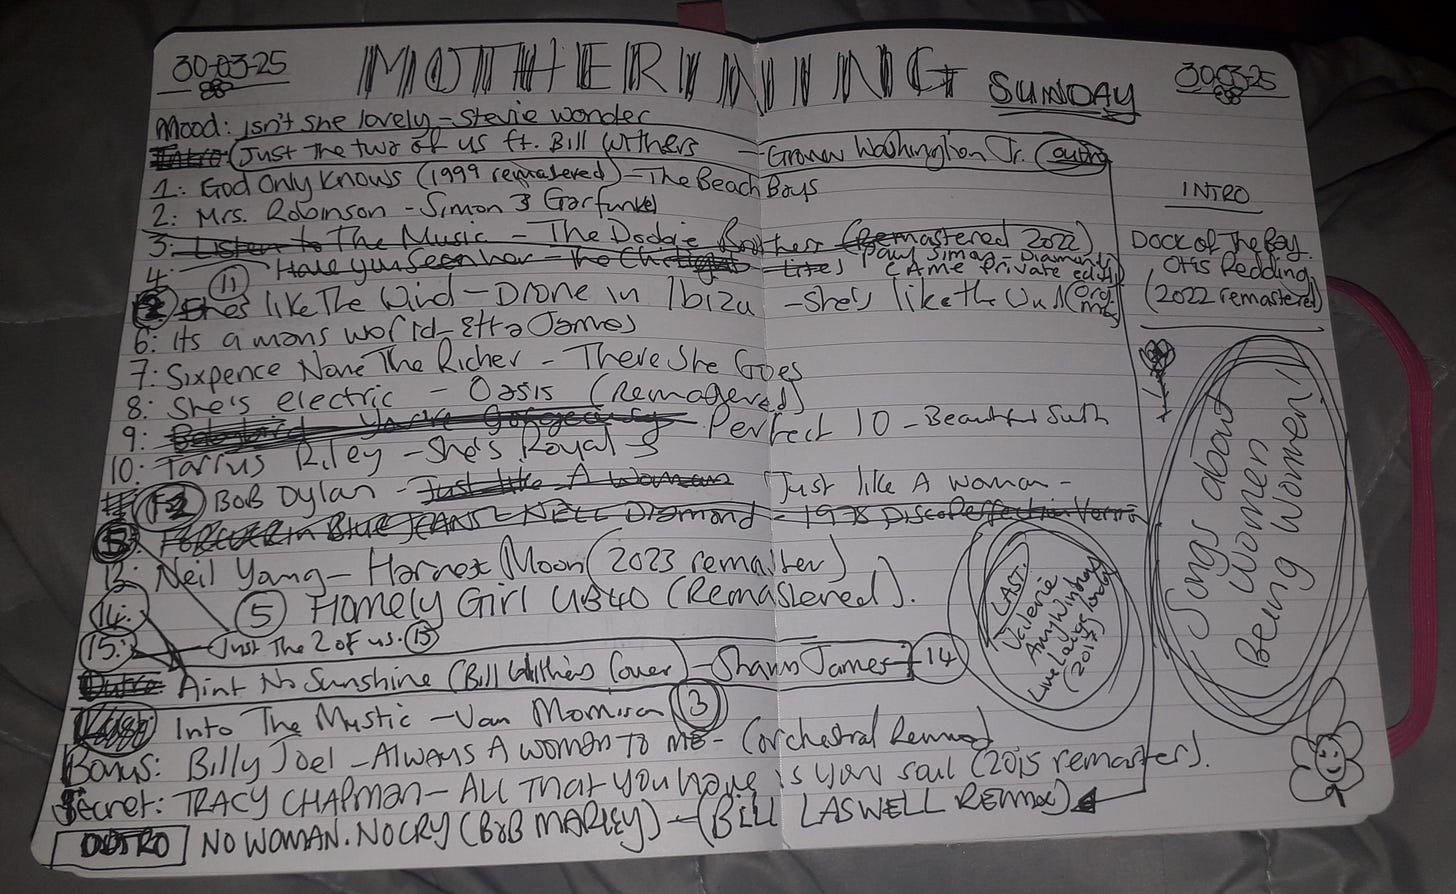 30-03-25
MOTHERINING SUNDAY
30-03-25
Mood: isn't she lovely - Stevie wonder
Intro (Just The two of us ft. Bill Withers - Grover Washington Jr.
1: God Only Knows (1999 remastered) - The Beach Boys
2: Mrs. Robinson - Simon & Garfunkel
3: Listen to The Music - The Doobie Brothers (Remastered 2022)
4: Have you seen her - The Chi Lites Paul Simon - Diamonds
(AME private edit)
11 She's like The Wind - Drone in Ibiza - She's like the Wind (Org mix)
6: Its a mans world - Etta James
7: Sixpence None The Richer - There She Goes
8: She's electric - Oasis (Remastered)
9: Perfect 10 - Beautiful Suth
10: Tarrus Riley - She's Royal
12 BOB Dylan - Just like A Woman Just like A woman -
FOREVER IN BLUE JEANS - NEIL Diamond - 1978 Disco Perfection Version
13: Neil Yang - Harvest Moon (2023 remaster)
14: 5 Homely Girl UB40 (Remastered).
15: Just The 2 of us. 15
Outro Aint No Sunshine (Bill Withers Cover) - Shawn James - 14
Last Into The Mystic - Van Morrison 3
Bonus: Billy Joel - Always A woman TO ME - (orchestral
Secret: TRACY CHAPMAN - All That you have is your soul (2015 remaster).
OUTRO NO WOMAN. NO CRY (BOB MARLEY) - (BILL LASWELL REMIX)
INTRO
Dock of The Bay.
Otis Redding
(2022 remastered)
Songs about
Women
Being Women!
LAST.
Valerie
Amy Winehouse
Live
(2017)